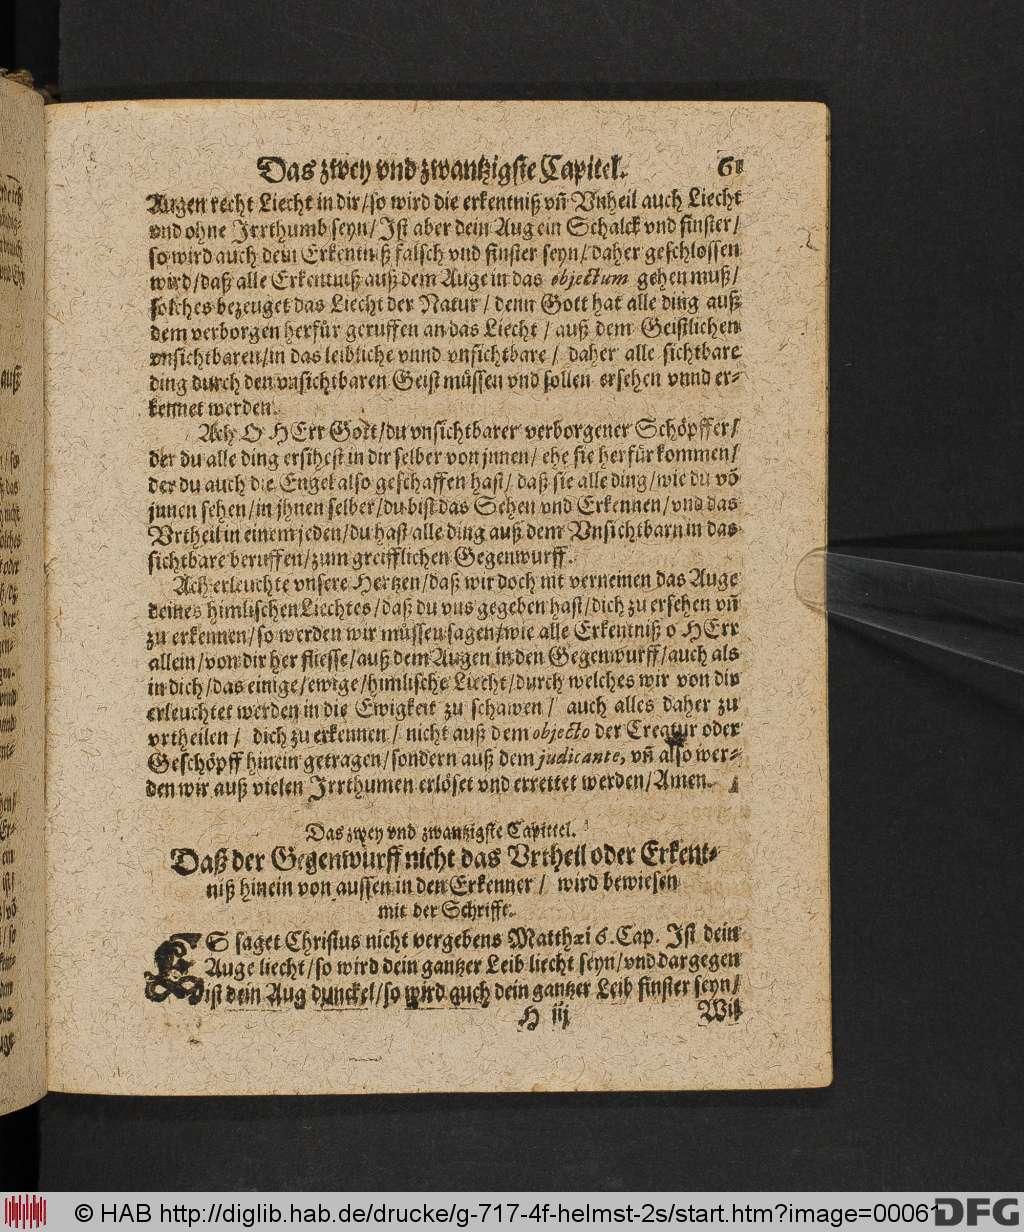 Das zwey vnd zwantzigste Capitel. 61
Augen recht Liecht in dir/so wird die erkentniß vñ Vnheil auch Liecht
vnd ohne Irrthumb seyn/Ist aber dein Aug ein Schalck vnd finster/
so wird auch dein Erkentniß falsch vnd finster seyn/daher geschlossen
wird/daß alle Erkentniß auß dem Auge in das objectum gehen muß/
solches bezeuget das Liecht der Natur/denn Gott hat alle ding auß
dem verborgen herfür geruffen an das Liecht/auß dem Geistlichen
vnsichtbaren/in das leibliche vnnd vnsichtbare/daher alle sichtbare
ding durch den vnsichtbaren Geist müssen vnd sollen ersehen vnnd er-
kennet werden.
Ach O HErr Gott/du vnsichtbarer verborgener Schöpffer/
der du alle ding ersihest in dir selber von jnnen/ehe sie herfür kommen/
der du auch die Engel also geschaffen hast/daß sie alle ding/wie du võ
jnnen sehen/in jhnen selber/du bist das Sehen vnd Erkennen/vnd das
Vrtheil in einem jeden/du hast alle ding auß dem Vnsichtbarn in das
sichtbare beruffen/zum greifflichen Gegenwurff.
Ach erleuchte vnsere Hertzen/daß wir doch nit verneinen das Auge
deines himlischen Liechtes/daß du vns gegeben hast/dich zu ersehen vñ
zu erkennen/so werden wir müssen sagen/wie alle Erkentniß o HErr
allein/von dir her fliesse/auß dem Augen in den Gegenwurff/auch als
in dich/das einige/ewige/himlische Liecht/durch welches wir von dir
erleuchtet werden in die Ewigkeit zu schawen/auch alles daher zu
vrtheilen/dich zu erkennen/nicht auß dem objecto der Creatur oder
Geschöpff hinein getragen/sondern auß dem judicante, vñ also wer-
den wir auß vielen Irrthumen erlöset vnd errettet werden/Amen.
Das zwey vnd zwantzigste Capittel.
Daß der Gegenwurff nicht das Vrtheil oder Erkent-
niß hinein von aussen in den Erkenner/wird bewiesen
mit der Schrifft.
ES saget Christus nicht vergebens Matthæi 6. Cap. Ist dein
Auge liecht/so wird dein gantzer Leib liecht seyn/vnd dargegen
ist dein Aug dunckel/so wird auch dein gantzer Leib finster seyn/
H iij Wilt
© HAB http://diglib.hab.de/drucke/g-717-4f-helmst-2s/start.htm?image=00061
DFG